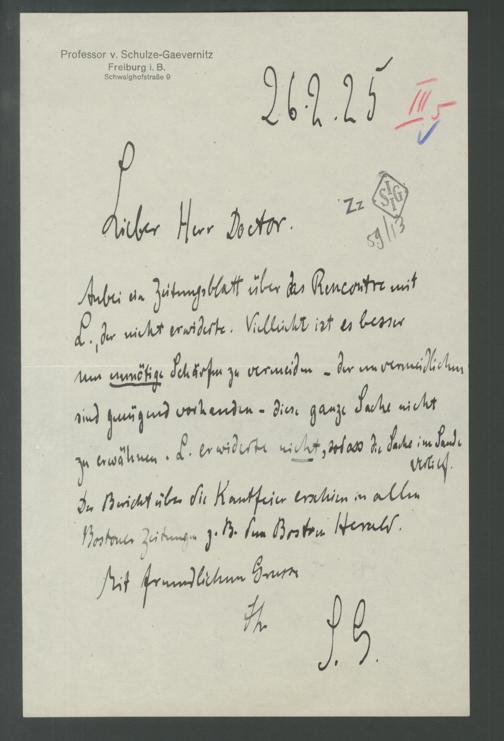 Professor v. Schulze-Gaevernitz
Freiburg i. B.
Schwaighofstraße 9
26.2.25
III 5
Zz
SIIG
59/13
Lieber Herr Doctor.
Anbei ein Zeitungsblatt über das Rencontre mit
L., der nicht erwiderte. Vielleicht ist es besser
um unnötige Schärfen zu vermeiden – der unvermeidlichen
sind genügend vorhanden – diese ganze Sache nicht
zu erwähnen. L. erwiderte nicht, sodass die Sache im Sande
verlief.
Der Bericht über die Kantfeier erschien in allen
Bostoner Zeitungen z. B. dem Boston Herald.
Mit freundlichem Gruss
Ihr
S. G.